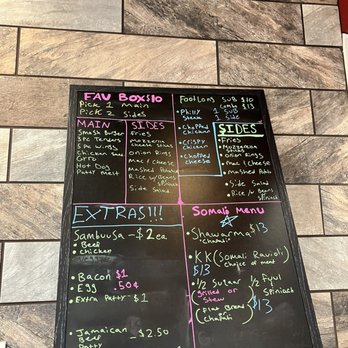 FAV BOX $10
Pick 1 Main
Pick 2 Sides
MAIN
Smash Burger
3pc Tenders
5pc wings
Chicken
Gyro
Hot Dog
Patty Melt
SIDES
Fries
Mozzarella
Cheese Sticks
Onion Rings
Mac & Cheese
Mashed Potato
Rice w/ Beans
Spinach
Side Salad
Footlong SUB $10
combo $13
• Philly Steak
1 SUB
1 Side
• Chopped Chicken
• Crispy Chicken
• Chopped Cheese
SIDES
• Fries
• Mozzarella Sticks
• Onion Rings
• Mac & Cheese
• Mashed
• Side Salad
• Rice w/ Beans
Spinach
EXTRAS!!!
Sambuusa - $2 ea
• Beef
• Chicken
• Bacon $1
• Egg .50¢
• Extra Patty - $1
• Jamaican - $2.50
Beef
Patty
Somali Menu
• Shawarma $13
• KK (Somali Ravioli)
Choice of meat
$13
• 1/2 Suqaar
(Grilled or Stew)
(Flat Bread)
$13
1/2 Fyul
Spinach